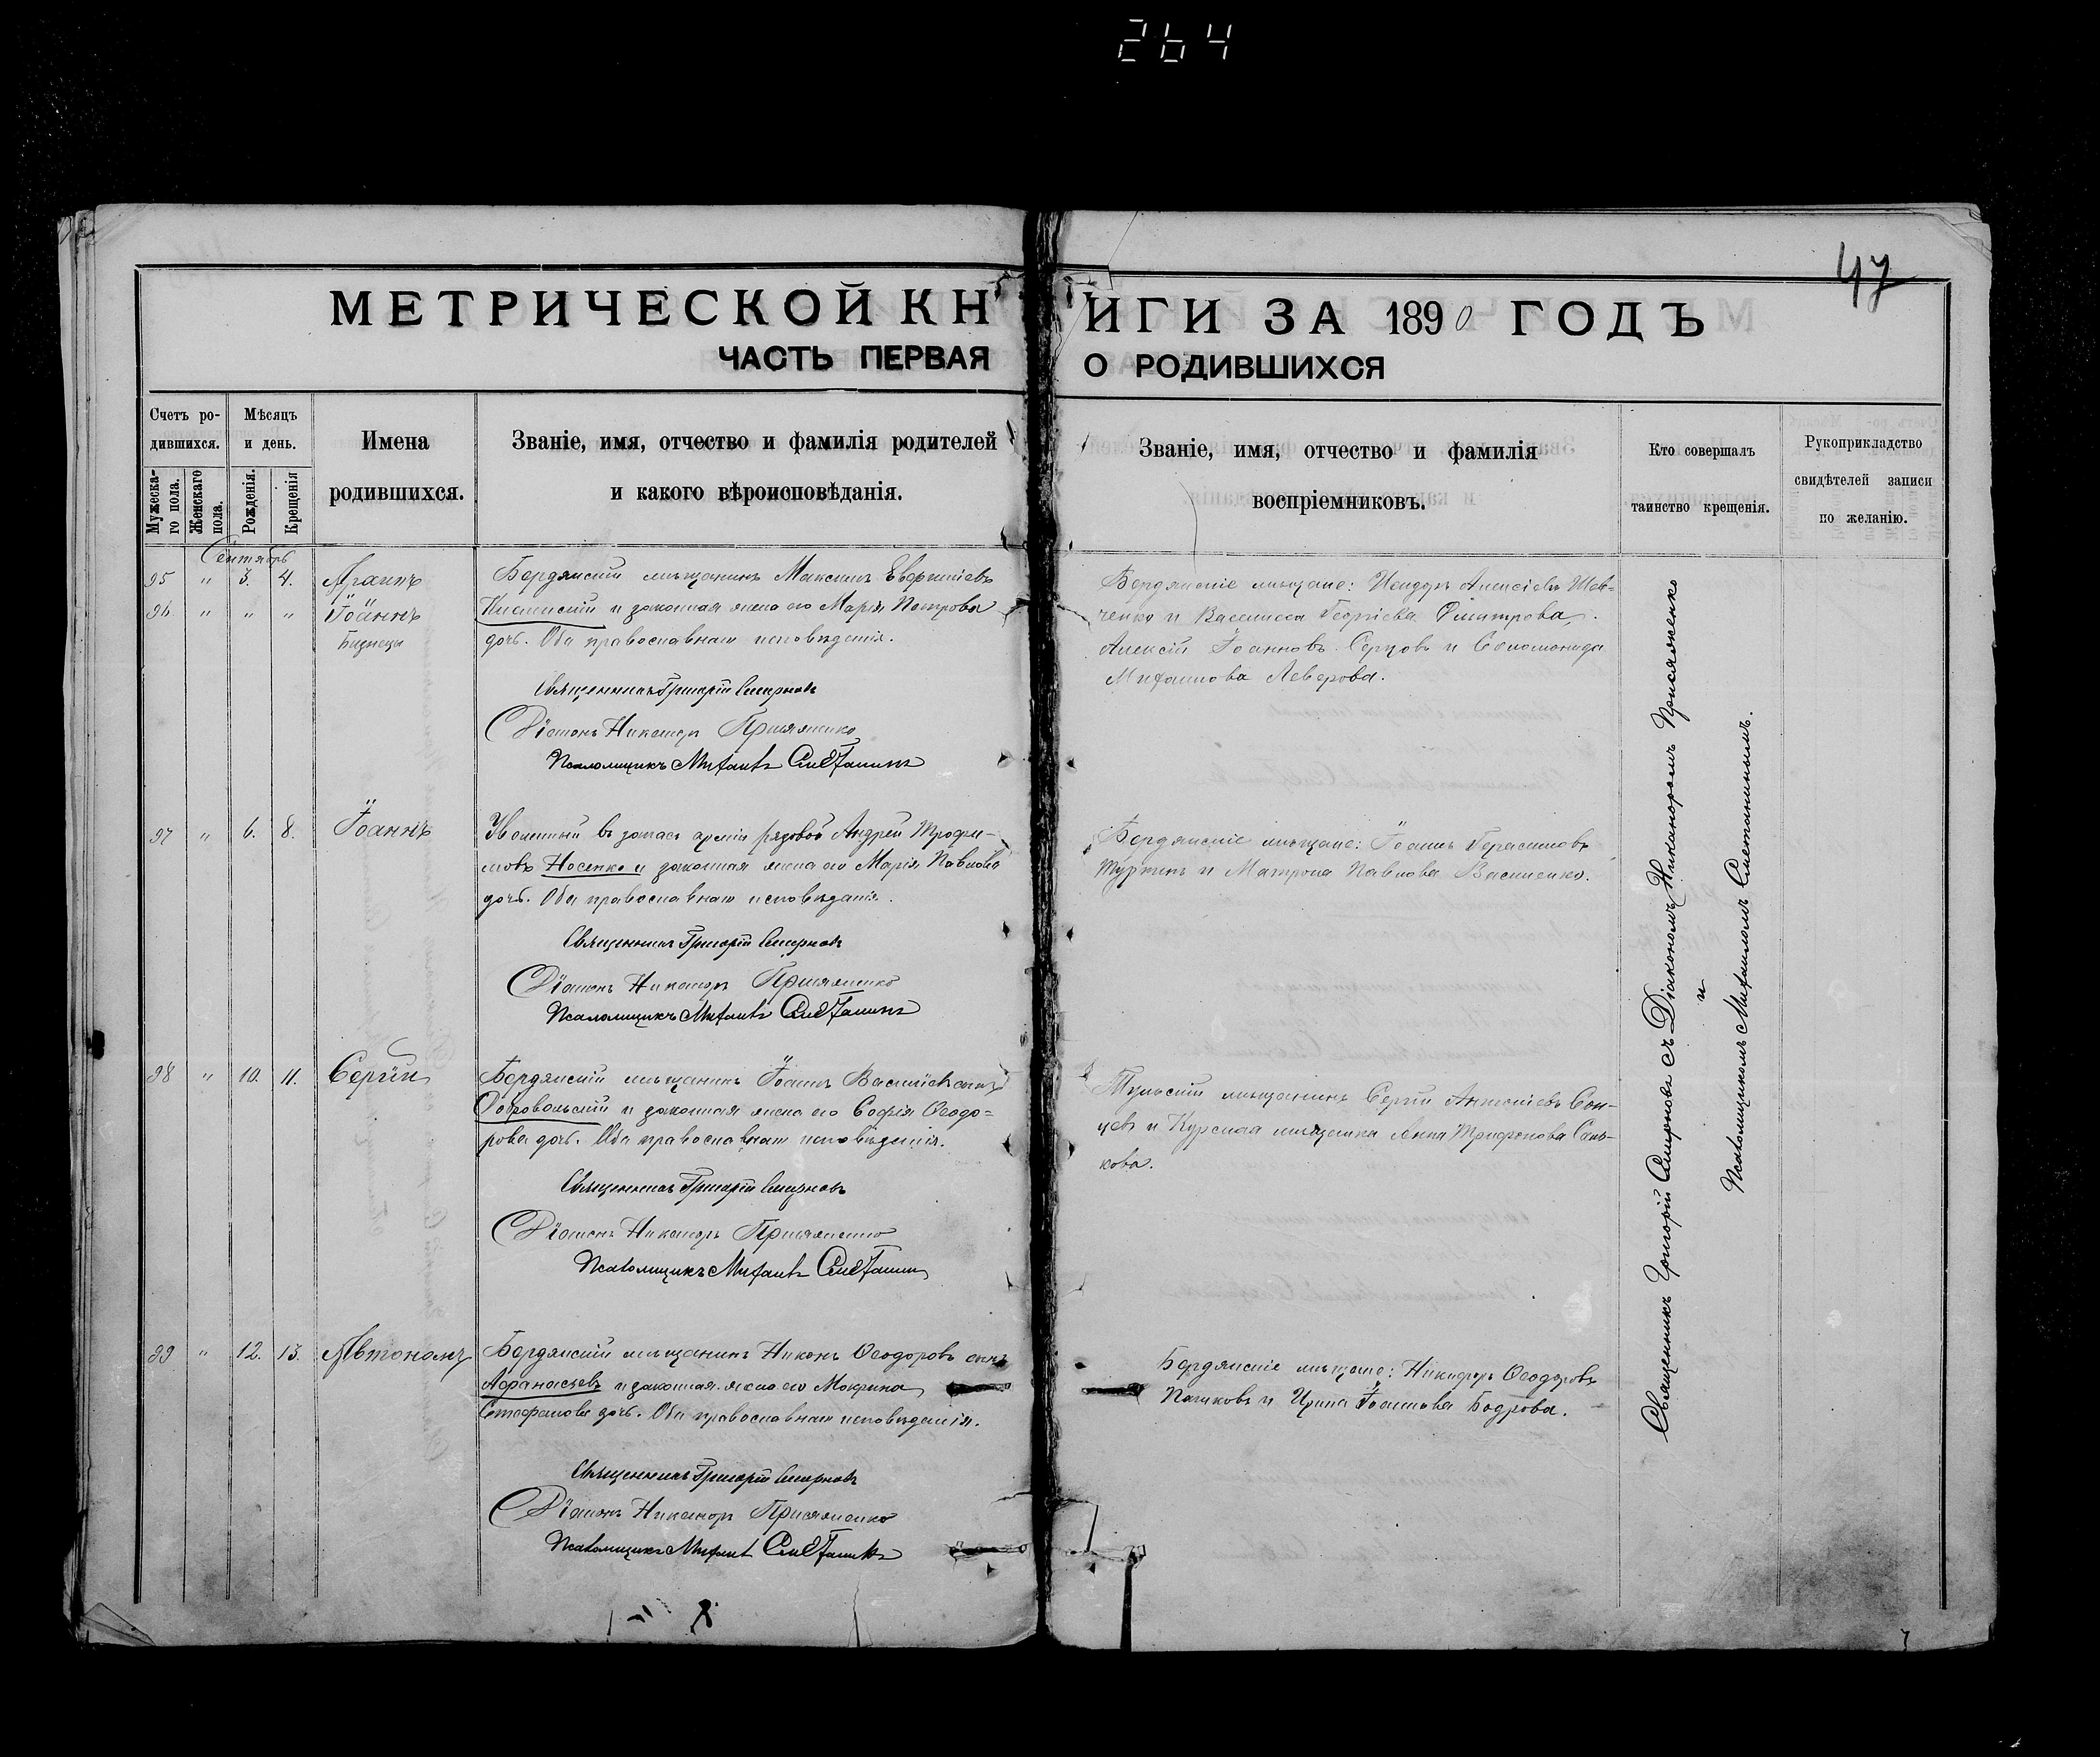 264
47
МЕТРИЧЕСКОЙ КНИГИ ЗА 1890 ГОДЪ
ЧАСТЬ ПЕРВАЯ О РОДИВШИХСЯ
Счетъ ро-
дившихся.
Мужеска-
го пола.
Женскаго
пола.
Мѣсяцъ
и день.
Рожденія.
Крещенія
Имена
родившихся.
Званіе, имя, отчество и фамилія родителей
и какого вѣроисповѣданія.
Званіе, имя, отчество и фамилія
воспріемниковъ.
Кто совершалъ
таинство крещенія.
Рукоприкладство
свидѣтелей записи
по желанію.
Сентябрь
95 " 3. 4.
96 " " " Іоаннъ
близнецы
Бердянскій мѣщанинъ Максимъ
и законная жена его Марія Петрова
дочь. Оба православнаго исповѣданія.
Священникъ Григорій Смирновъ
Діаконъ Никаноръ Присяженко
Псаломщикъ Михаилъ Сметанинъ
Бердянскіе мѣщане: Исидоръ Алексіевъ Шев-
ченко и Василисса Георгіева Димитрова,
Алексій Іоанновъ Серховъ и Соломонида
Михаилова Леверова.
97 " 6. 8. Іоаннъ
Уволенный въ запасъ арміи рядовой Андрей Трофи-
мовъ Носенко и законная жена его Марія Павлова
дочь. Оба православнаго исповѣданія.
Священникъ Григорій Смирновъ
Діаконъ Никаноръ Присяженко
Псаломщикъ Михаилъ Сметанинъ
Бердянскіе мѣщане: Іоаннъ Герасимовъ
Туркинъ и Матрона Павлова Василенко.
98 " 10. 11. Сергій
Бердянскій мѣщанинъ Іоаннъ Василіевъ сынъ
Добровольскій и законная жена его Софія Ѳеодо-
рова дочь. Оба православнаго исповѣданія.
Священникъ Григорій Смирновъ
Діаконъ Никаноръ Присяженко
Псаломщикъ Михаилъ Сметанинъ
Тульскій мѣщанинъ Сергій Антоніевъ Сон-
цевъ и Курская мѣщанка Анна Трифонова Сань-
кова.
99 " 12. 13. Автономъ
Бердянскій мѣщанинъ Никонъ Ѳеодоровъ сынъ
Афанасьевъ и законная жена его Мокрина
Стефанова дочь. Оба православнаго исповѣданія.
Священникъ Григорій Смирновъ
Діаконъ Никаноръ Присяженко
Псаломщикъ Михаилъ Сметанинъ
Бердянскіе мѣщане: Никифоръ Ѳеодоровъ
Пашковъ и Ирина Іоаннова Бодрова.
Священникъ Григорій Смирновъ съ Діакономъ Никаноромъ Присяженко
и
Псаломщикомъ Михаиломъ Сметанинымъ.